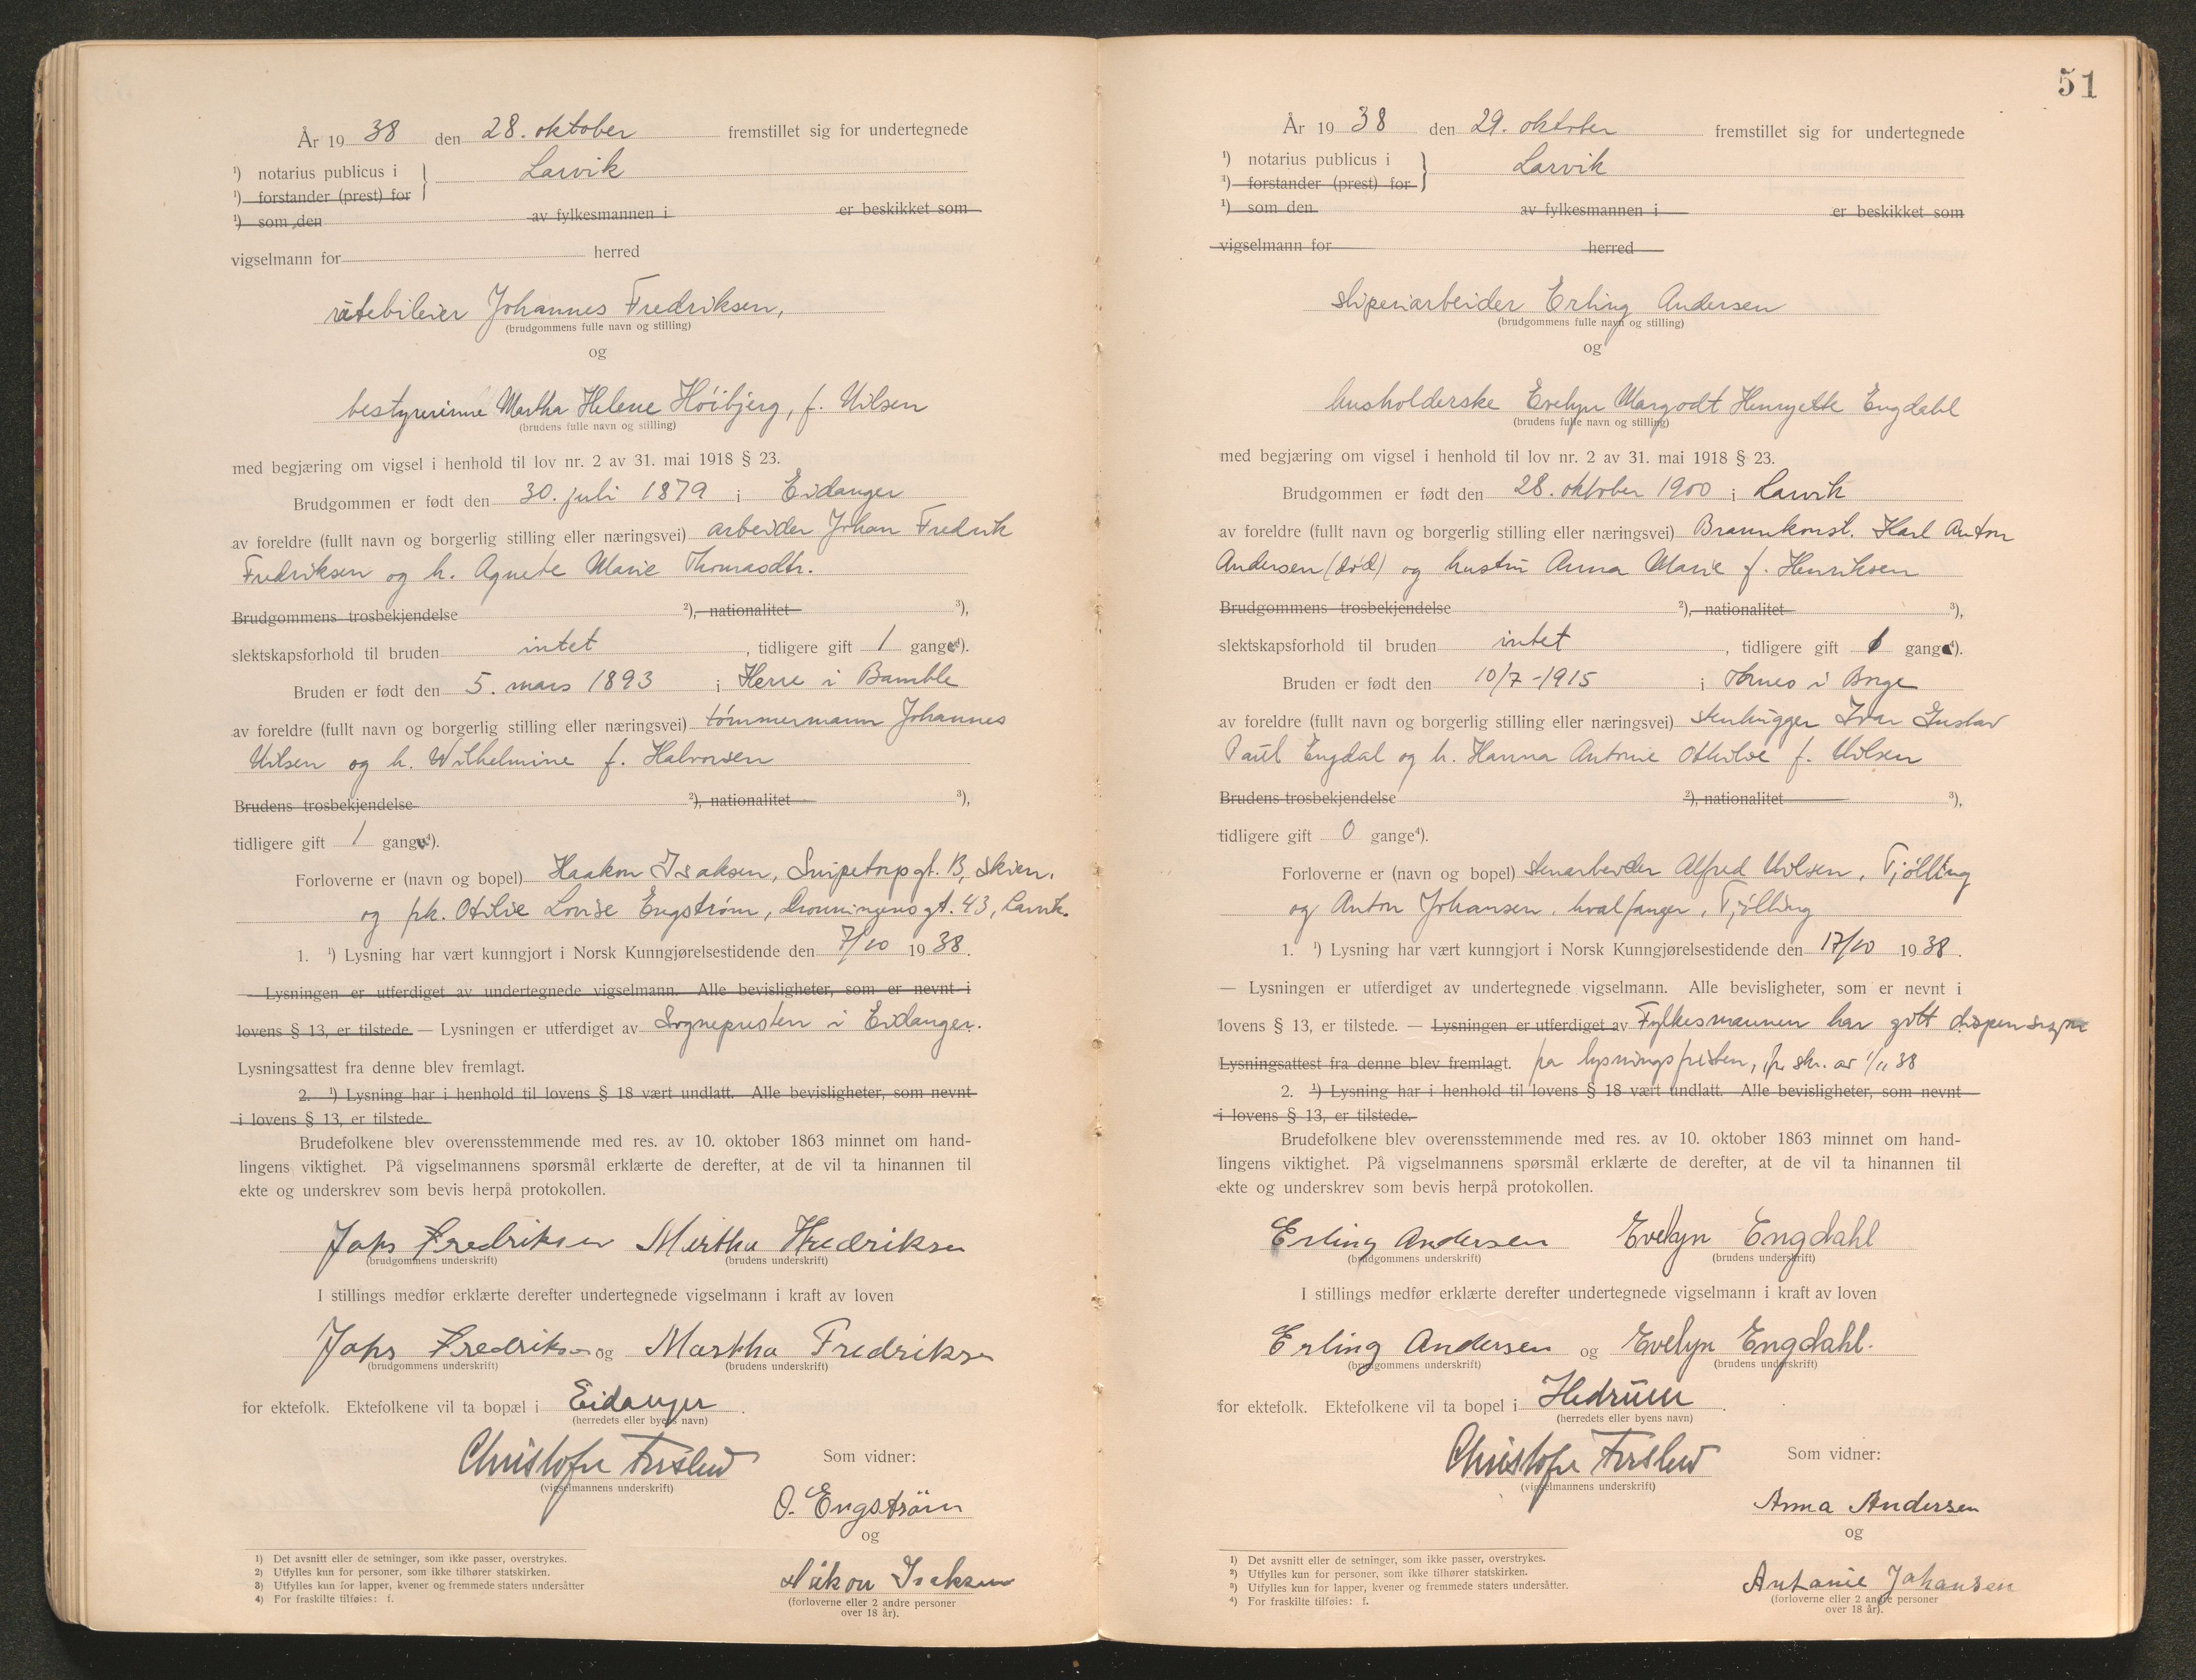 År 19 38 den 28. oktober fremstillet sig for undertegnede
¹) notarius publicus i } Larvik
¹) forstander (prest) for
¹) som den av fylkesmannen i er beskikket som
vigselmann for herred
rutebileier Johannes Fredriksen,
(brudgommens fulle navn og stilling)
og
bestyrerinne Martha Helene Höibjerg, f. Nilsen
(brudens fulle navn og stilling)
med begjæring om vigsel i henhold til lov nr. 2 av 31. mai 1918 § 23.
Brudgommen er født den 30. juli 1879 i Eidanger
av foreldre (fullt navn og borgerlig stilling eller næringsvei) arbeider Johan Fredrik
Fredriksen og h. Agnete Marie Thomasdtr.
Brudgommens trosbekjendelse ²), nationalitet ³),
slektskapsforhold til bruden intet, tidligere gift 1 gang⁴).
Bruden er født den 5. mars 1893 i Herre i Bamble
av foreldre (fullt navn og borgerlig stilling eller næringsvei) tømmermann Johannes
Nilsen og h. Wilhelmine f. Halvorsen
Brudens trosbekjendelse ²), nationalitet ³),
tidligere gift 1 gang⁴).
Forloverne er (navn og bopel) Haakon Isaksen, Snipetorpgt. 13, Skien.
og frk. Otilie Lovise Engstrøm, Dronningensgt. 43, Larvik.
1. ¹) Lysning har vært kunngjort i Norsk Kunngjørelsestidende den 7/10 19 38.
— Lysningen er utferdiget av undertegnede vigselmann. Alle bevisligheter, som er nevnt i
lovens § 13, er tilstede. — Lysningen er utferdiget av Sognepresten i Eidanger.
Lysningsattest fra denne blev fremlagt.
2. ¹) Lysning har i henhold til lovens § 18 vært undlatt. Alle bevisligheter, som nevnt
i lovens § 13, er tilstede.
Brudefolkene blev overensstemmende med res. av 10. oktober 1863 minnet om hand-
lingens viktighet. På vigselmannens spørsmål erklærte de derefter, at de vil ta hinannen til
ekte og underskrev som bevis herpå protokollen.
Johs Fredriksen Martha Fredriksen
(brudgommens underskrift) (brudens underskrift)
I stillings medfør erklærte derefter undertegnede vigselmann i kraft av loven
Johs Fredriksen og Martha Fredriksen
(brudgommens underskrift) (brudens underskrift)
for ektefolk. Ektefolkene vil ta bopæl i Eidanger.
(herredets eller byens navn)
Christofer
(vigselmannens underskrift)
Som vidner:
O. Engström
og
Håkon Isaksen
(forloverne eller 2 andre personer
over 18 år).
1) Det avsnitt eller de setninger, som ikke passer, overstrykes.
2) Utfylles kun for personer, som ikke tilhører statskirken.
3) Utfylles kun for lapper, kvener og fremmede staters undersåtter
4) For fraskilte tilføies: f.
51
År 19 38 den 29. oktober fremstillet sig for undertegnede
¹) notarius publicus i } Larvik
¹) forstander (prest) for
¹) som den av fylkesmannen i er beskikket som
vigselmann for herred
sliperiarbeider Erling Andersen
(brudgommens fulle navn og stilling)
og
husholderske Evelyn Margodt Henryette Engdahl
(brudens fulle navn og stilling)
med begjæring om vigsel i henhold til lov nr. 2 av 31. mai 1918 § 23.
Brudgommen er født den 28. oktober 1900 i Larvik
av foreldre (fullt navn og borgerlig stilling eller næringsvei) Brannkonst. Karl Anton
Andersen (død) og hustru Anna Marie f. Henriksen
Brudgommens trosbekjendelse ²), nationalitet ³),
slektskapsforhold til bruden intet, tidligere gift 1 gang⁴).
Bruden er født den 10/7-1915 i Tornes i Borge
av foreldre (fullt navn og borgerlig stilling eller næringsvei) stenhugger Ivar Gustav
Paul Engdal og h. Hanna Antonie Othilie f. Nilsen
Brudens trosbekjendelse ²), nationalitet ³),
tidligere gift 0 gange⁴).
Forloverne er (navn og bopel) stenarbeider Alfred Nilsen, Tjölling
og Anton Johansen, hvalfanger, Tjölling
1. ¹) Lysning har vært kunngjort i Norsk Kunngjørelsestidende den 17/10 19 38.
— Lysningen er utferdiget av undertegnede vigselmann. Alle bevisligheter, som er nevnt i
lovens § 13, er tilstede. — Lysningen er utferdiget av Fylkesmannen har gitt dispensasjon
Lysningsattest fra denne blev fremlagt. fra lysningsfristen, skr. av 38
2. ¹) Lysning har i henhold til lovens § 18 vært undlatt. Alle bevisligheter, som nevnt
i lovens § 13, er tilstede.
Brudefolkene blev overensstemmende med res. av 10. oktober 1863 minnet om hand-
lingens viktighet. På vigselmannens spørsmål erklærte de derefter, at de vil ta hinannen til
ekte og underskrev som bevis herpå protokollen.
Erling Andersen Evelyn Engdahl
(brudgommens underskrift) (brudens underskrift)
I stillings medfør erklærte derefter undertegnede vigselmann i kraft av loven
Erling Andersen og Evelyn Engdahl.
(brudgommens underskrift) (brudens underskrift)
for ektefolk. Ektefolkene vil ta bopel i Hedrum.
(herredets eller byens navn)
Christofer
(vigselmannens underskrift)
Som vidner:
Anna Andersen
og
Antonie Johansen
(forloverne eller 2 andre personer
over 18 år).
1) Det avsnitt eller de setninger, som ikke passer, overstrykes.
2) Utfylles kun for personer, som ikke tilhører statskirken.
3) Utfylles kun for lapper, kvener og fremmede staters undersåtter.
4) For fraskilte tilføies: f.